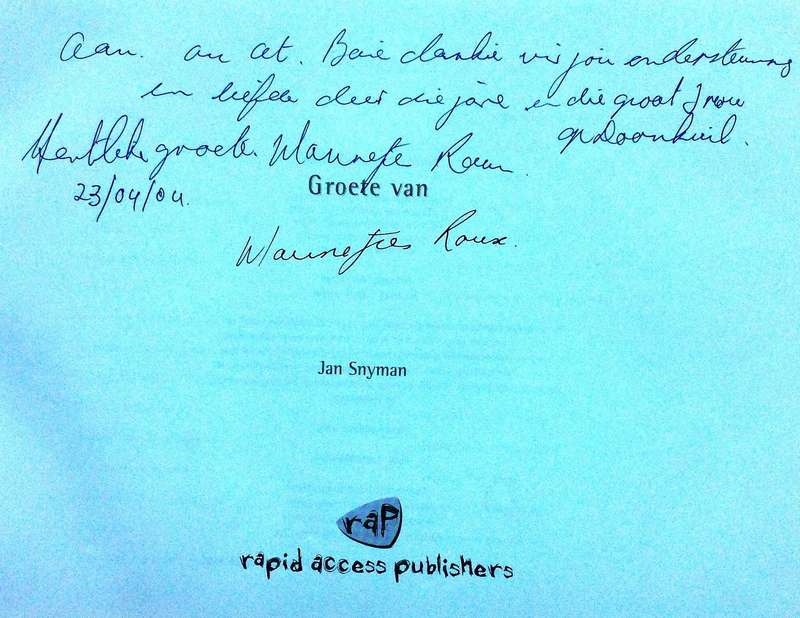 Aan. ou At. Baie dankie vir jou ondersteuning
en liefde deur die jare en die groot Trou
op Doornkuil.
Hartlike groete. Mannetjie Roux.
23/04/04.
Groete van
Mannetjies Roux.
Jan Snyman
rap
rapid access publishers